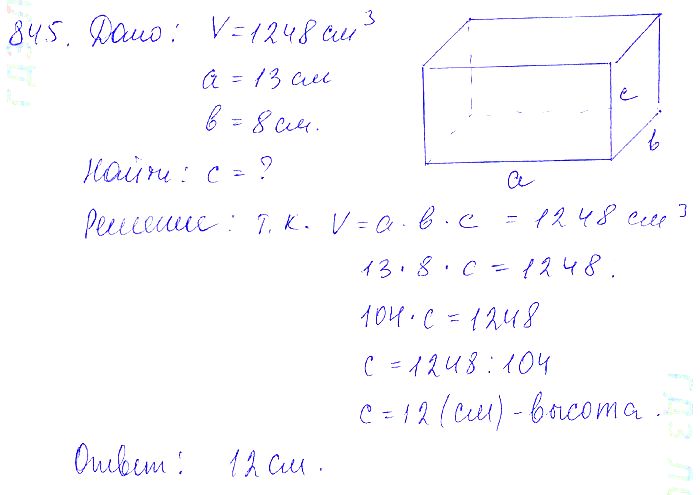 845. Дано: V = 1248 см³
a = 13 см
в = 8 см.
Найти: c = ?
c
в
a
Решение: т.к. V = a · в · c = 1248 см³
13 · 8 · c = 1248.
104 · c = 1248
c = 1248 : 104
c = 12 (см) - высота.
Ответ: 12 см.